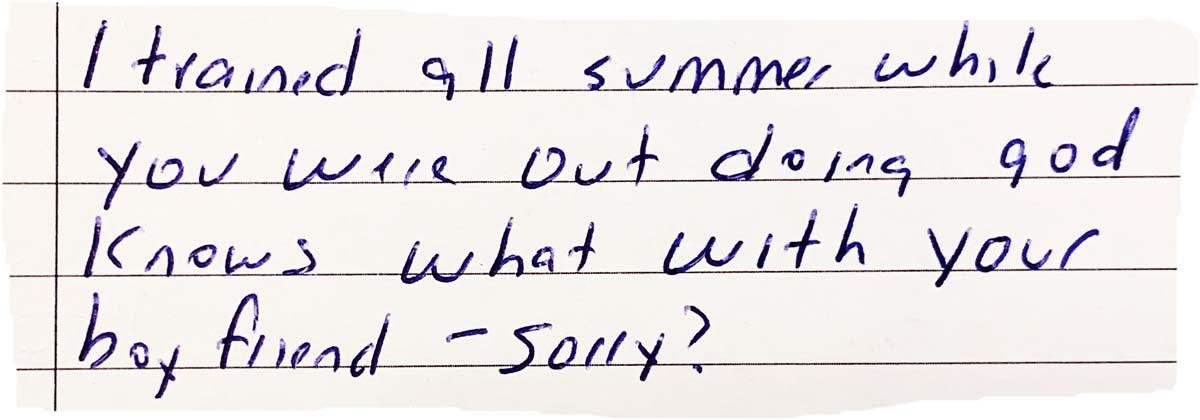 I trained all summer while
you were out doing god
knows what with your
boy friend - sorry?